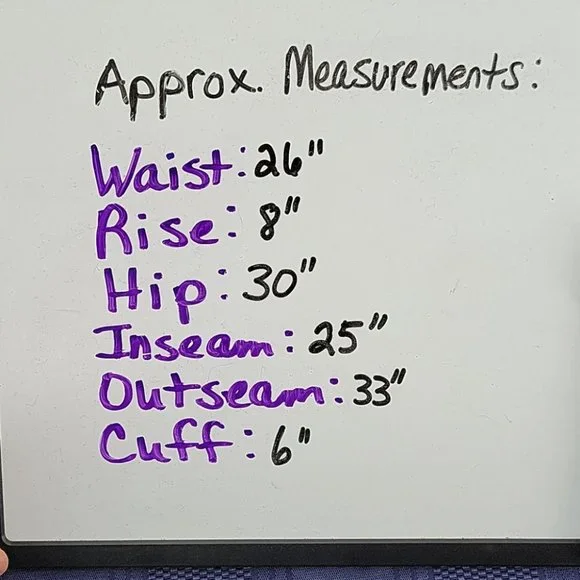 Approx. Measurements:
Waist: 26"
Rise: 8"
Hip: 30"
Inseam: 25"
Outseam: 33"
Cuff: 6"